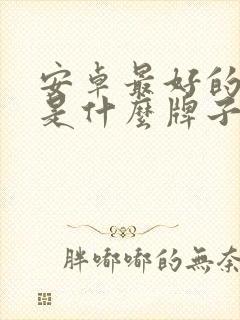 安卓最好的
是什麼牌子
胖嘟嘟的無奈